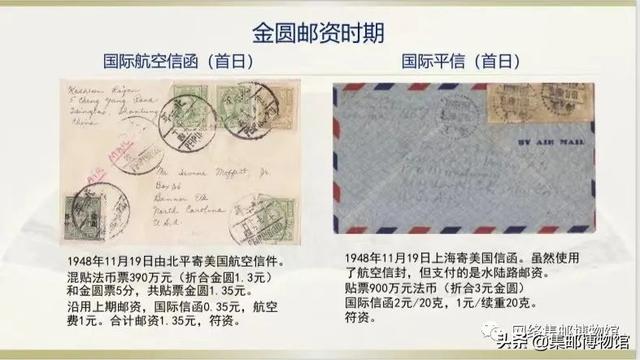 金圆邮资时期
国际航空信函（首日）
国际平信（首日）
Kathleen
5 Cheng Yang Road
Tsingtao, Shantung
China
AIR MAIL
PEIPING
Mr. Irvine Moffett, Jr.
Box 36
Banner Elk
North Carolina
U.S.A
BY AIR MAIL
1948年11月19日由北平寄美国航空信件。
混贴法币票390万元（折合金圆1.3元）
和金圆票5分，共贴票金圆1.35元。
沿用上期邮资，国际信函0.35元，航空
费1元。合计邮资1.35元，符资。
1948年11月19日上海寄美国信函。虽然使用
了航空信封，但支付的是水陆路邮资。
贴票900万元法币（折合3元金圆）
国际信函2元/20克，1元/续重20克。
符资。
网络集邮博物馆
头条@集邮博物馆